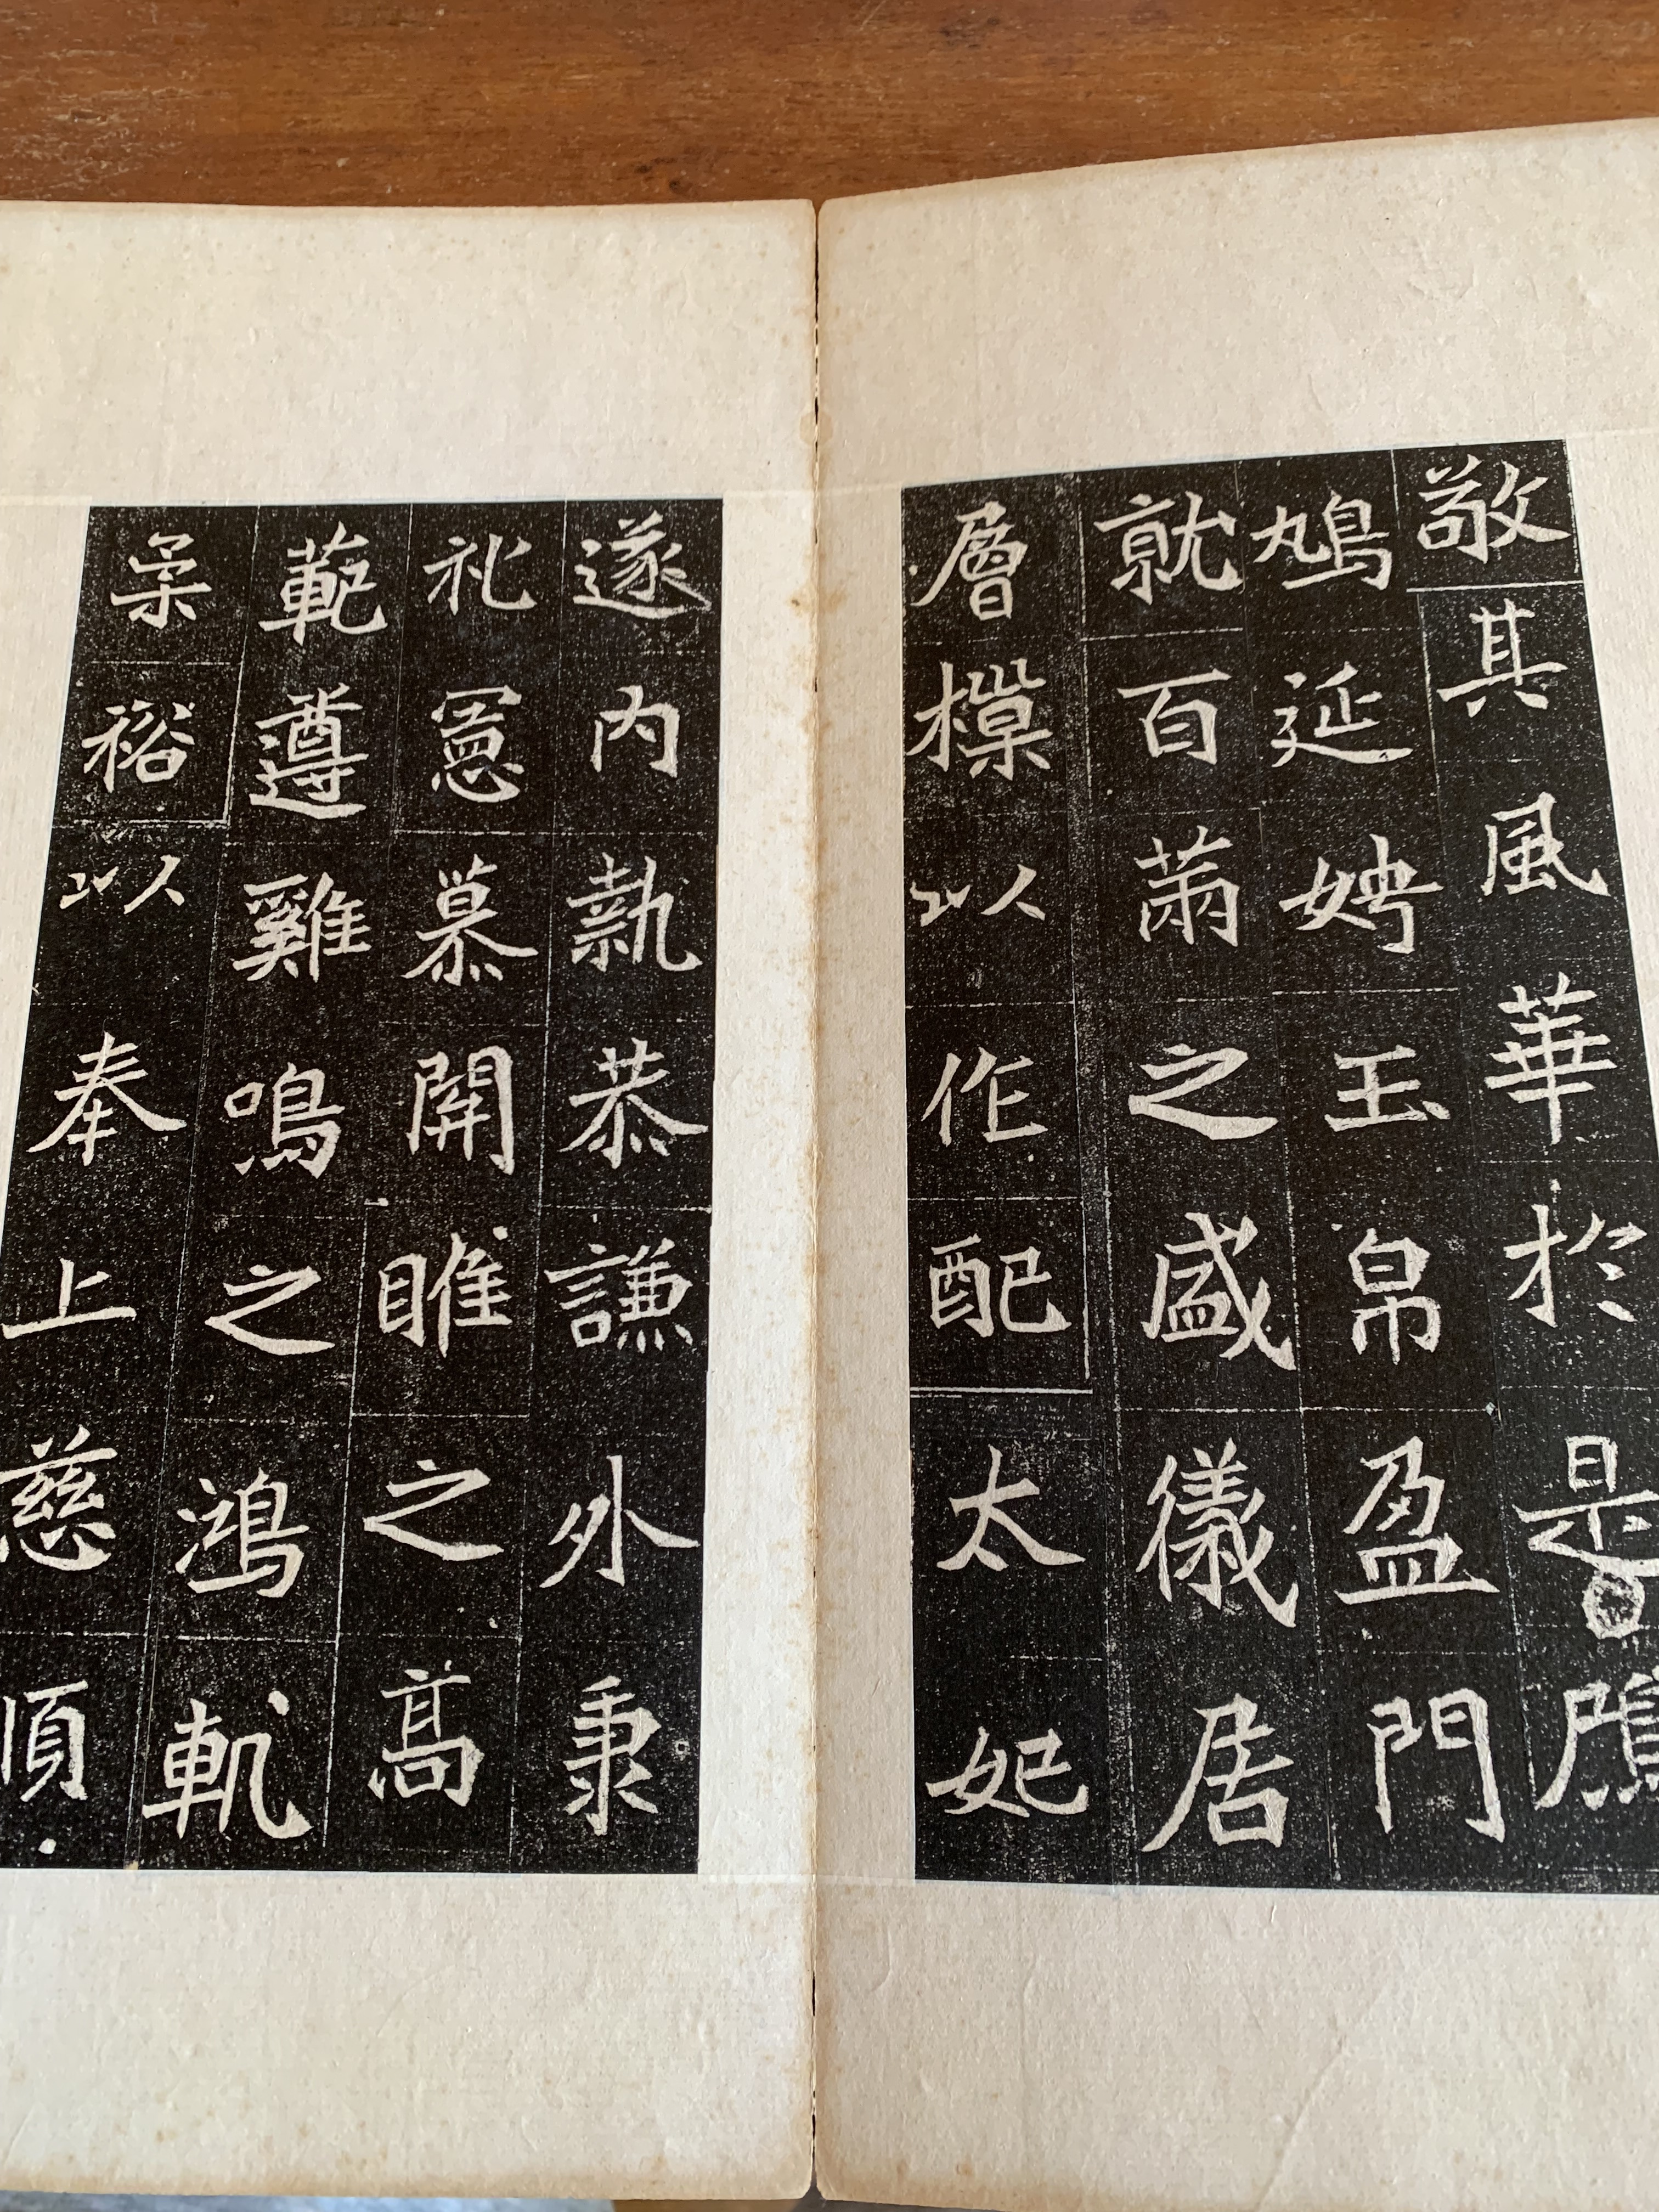 敬其風華於是鴈
鳩延娉玉帛盈門
就百兩之盛儀居
層以作配太妃
遂內執恭謙外秉
礼憲慕開雎之高
範遵雞鳴之鴻軌
柔裕以奉上慈順